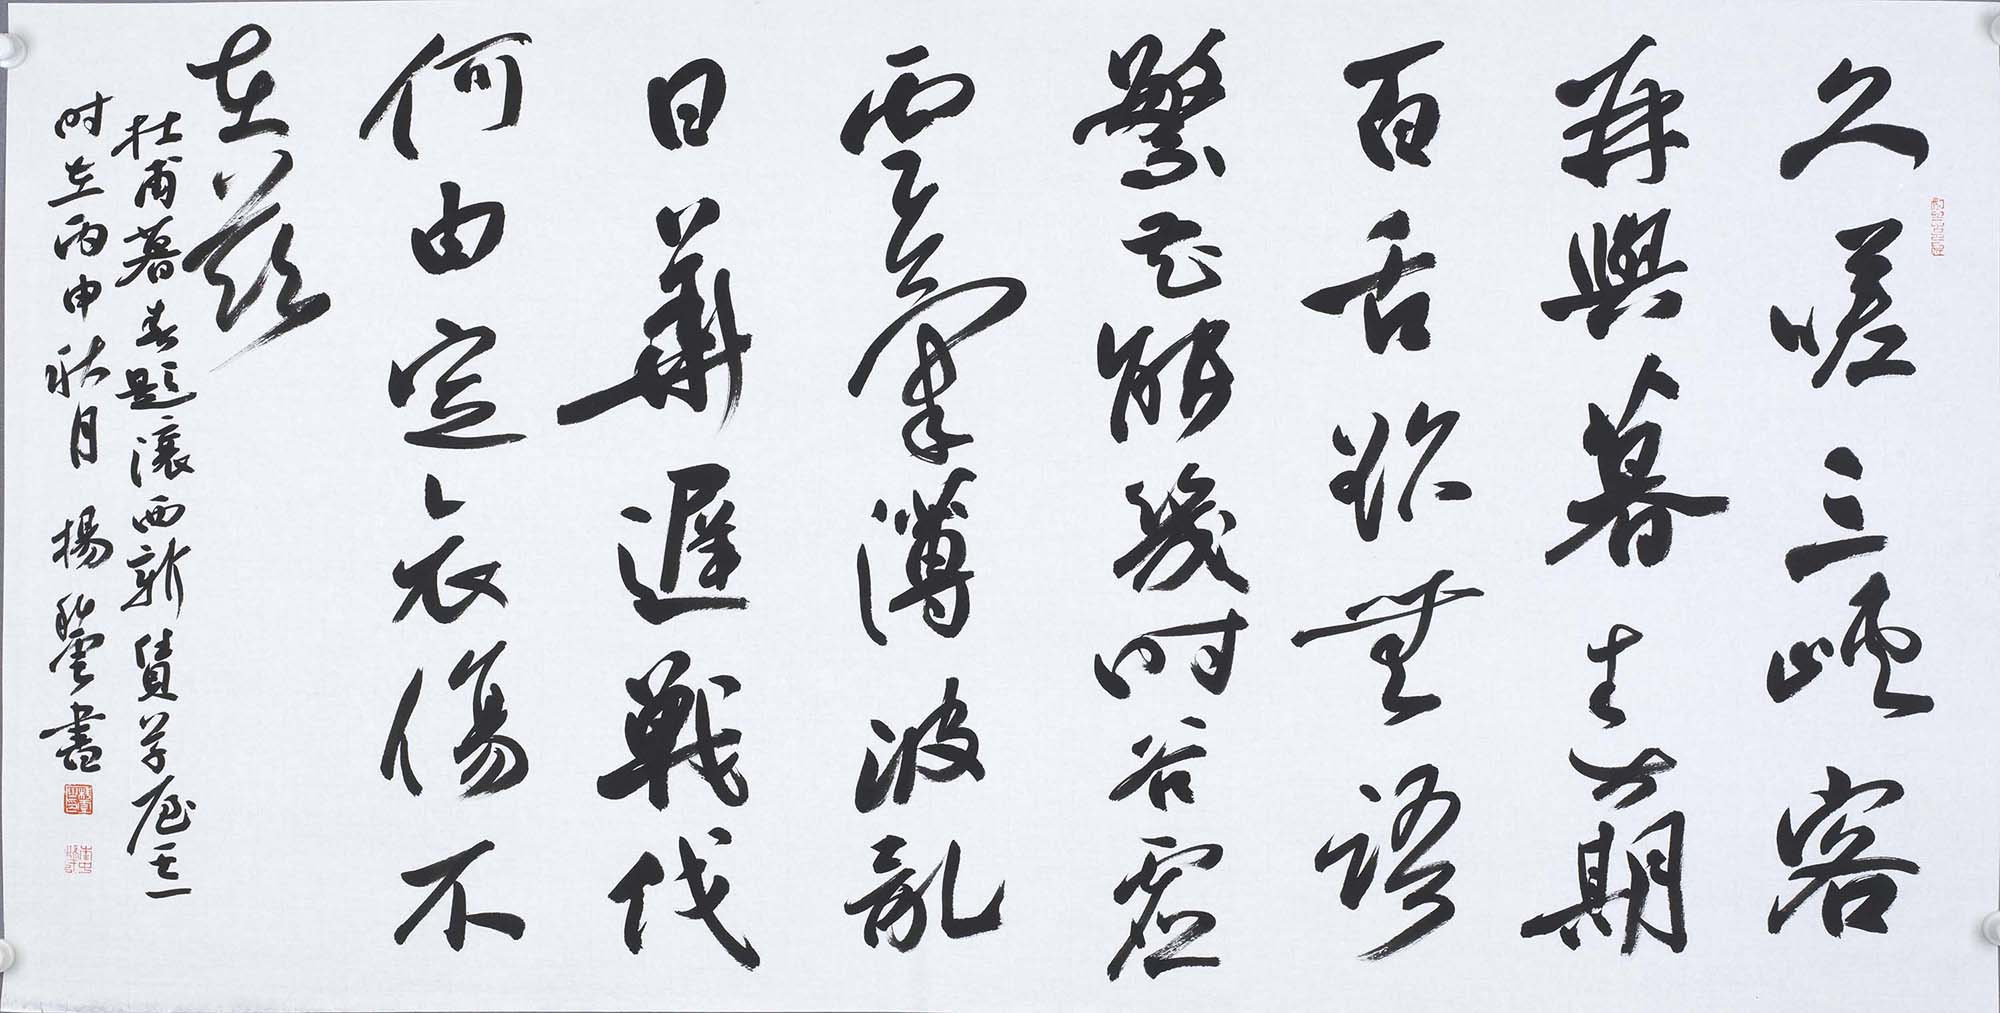 久嗟三峽客
再與暮春期
百舌欲無語
繁花能幾时谷虛
雲氣薄波乱
日華遲戰伐
何由定哀傷不
在茲
杜甫暮春題瀼西新賃草屋之一
时在丙申秋月 楊書